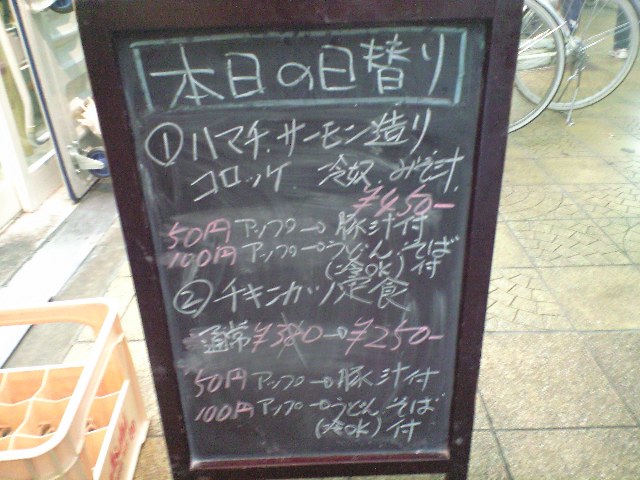 本日の日替り
①ハマチ、サーモン造り
コロッケ 冷奴 みそ汁
¥450-
50円アップ→豚汁付
100円アップ→うどん、そば
(冷OK)付
②チキンカツ定食
通常¥380→¥250-
50円アップ→豚汁付
100円アップ→うどん、そば
(冷OK)付